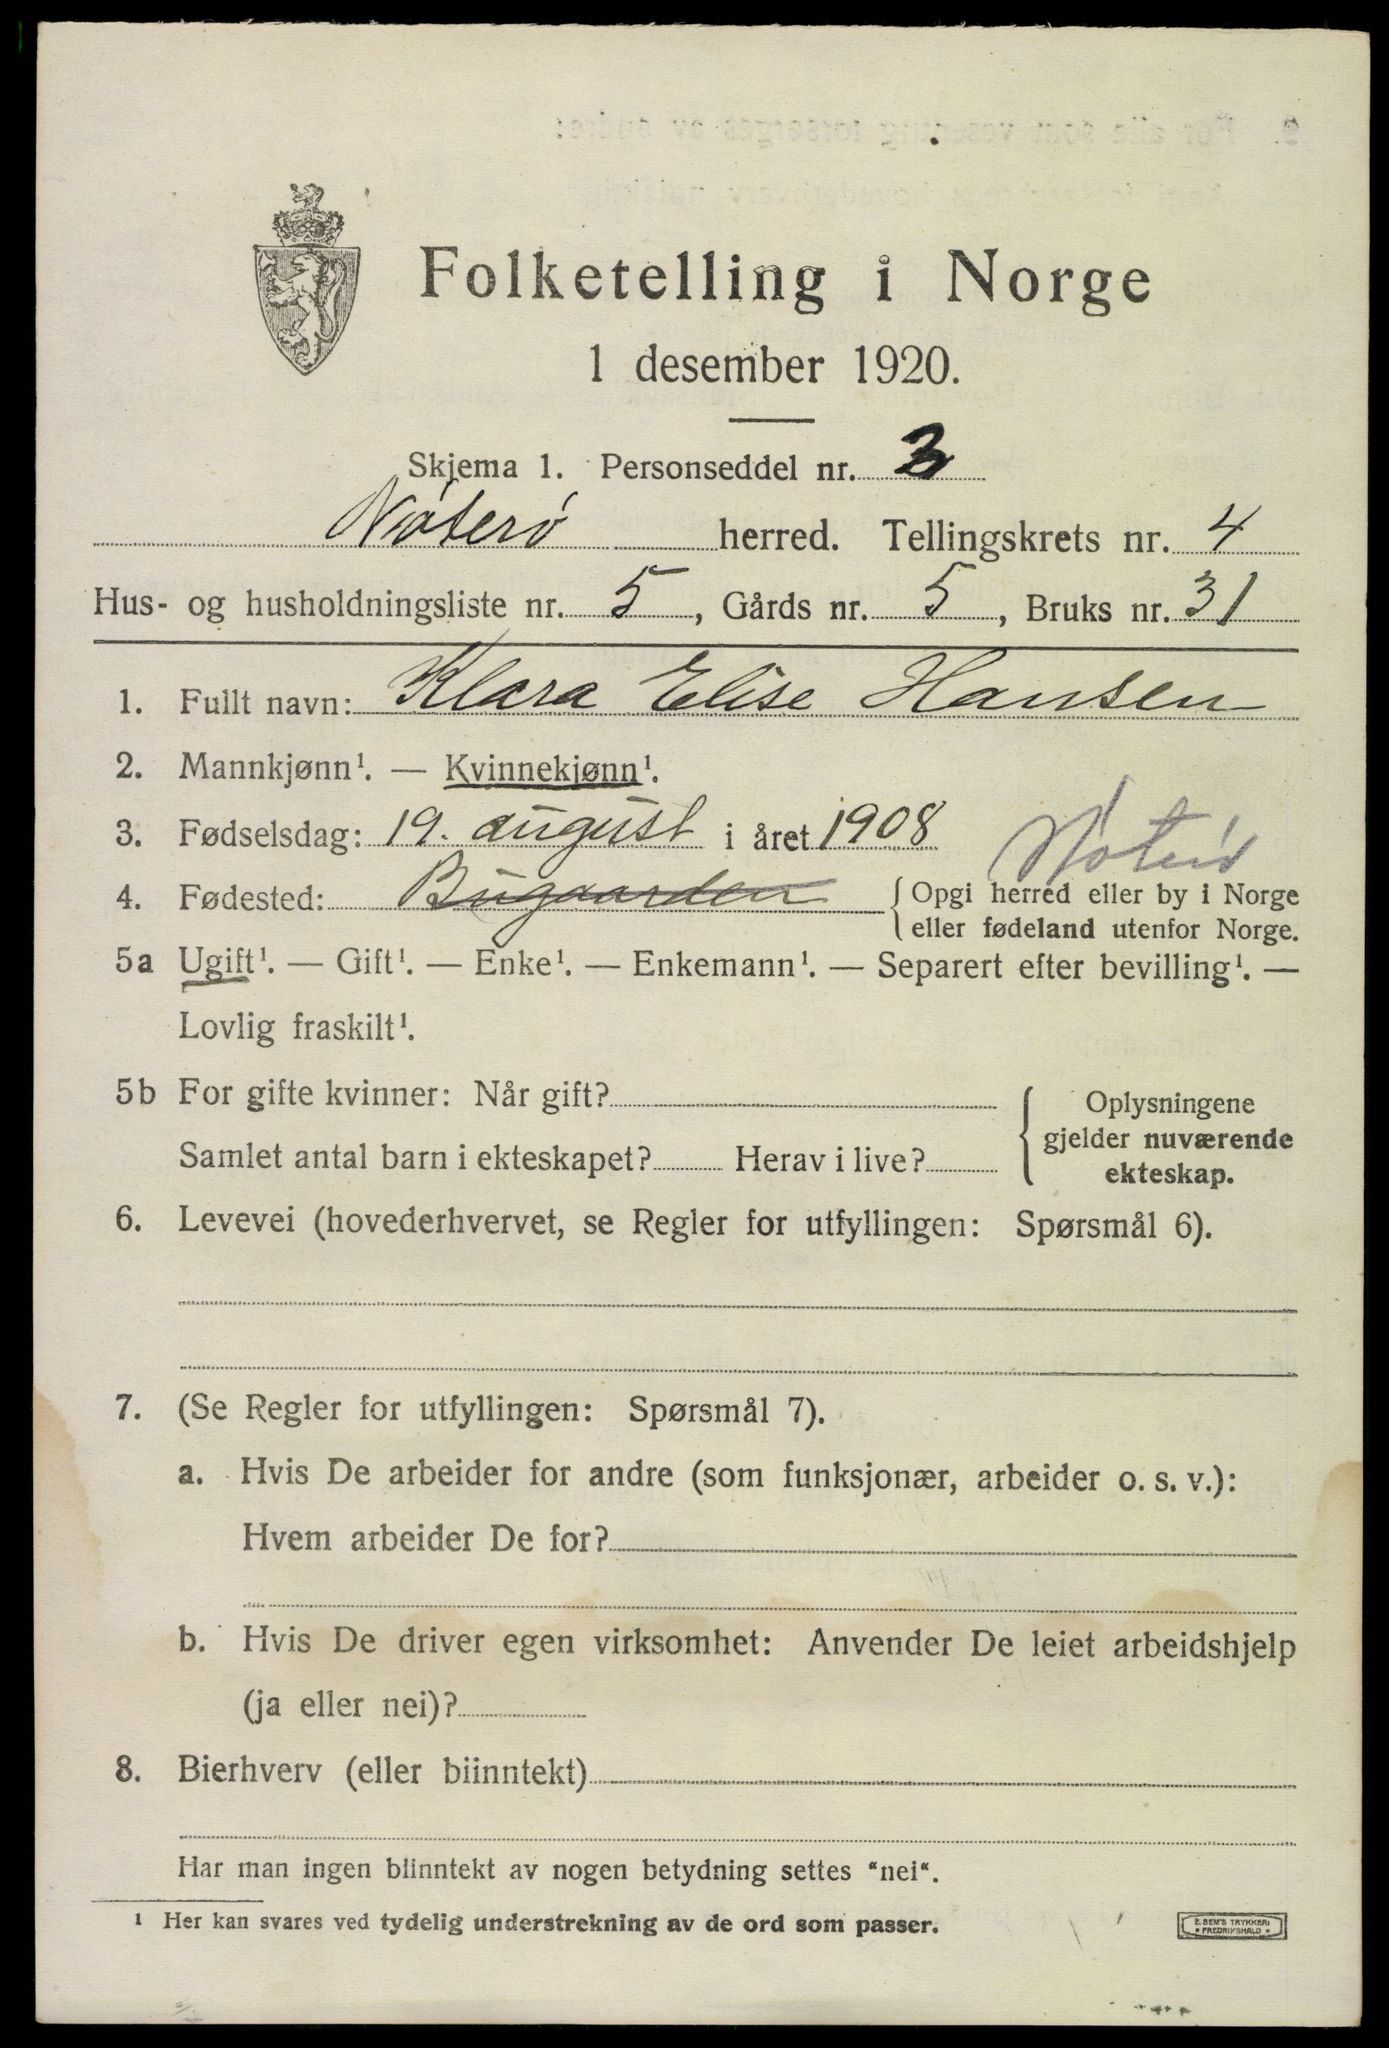 Folketelling i Norge
1 desember 1920.
Skjema 1. Personseddel nr. 3
Nøterø herred. Tellingskrets nr. 4
Hus- og husholdningsliste nr. 5, Gårds nr. 5, Bruks nr. 31
1. Fullt navn: Klara Elise Hansen
2. Mannkjønn¹. — Kvinnekjønn¹.
3. Fødselsdag: 19. august i året 1908
Nøterø
4. Fødested: Bugaarden { Opgi herred eller by i Norge
eller fødeland utenfor Norge.
5a Ugift¹. — Gift¹. — Enke¹. — Enkemann¹. — Separert efter bevilling¹. —
Lovlig fraskilt¹.
5b For gifte kvinner: Når gift? { Oplysningene
gjelder nuværende
Samlet antal barn i ekteskapet? Herav i live? ekteskap.
6. Levevei (hovederhvervet, se Regler for utfyllingen: Spørsmål 6).
7. (Se Regler for utfyllingen: Spørsmål 7).
a. Hvis De arbeider for andre (som funksjonær, arbeider o. s. v.):
Hvem arbeider De for?
b. Hvis De driver egen virksomhet: Anvender De leiet arbeidshjelp
(ja eller nei)?
8. Bierhverv (eller biinntekt)
Har man ingen biinntekt av nogen betydning settes "nei".
¹ Her kan svares ved tydelig understrekning av de ord som passer.
E. SEM'S TRYKKERI
• FREDRIKSHALD •